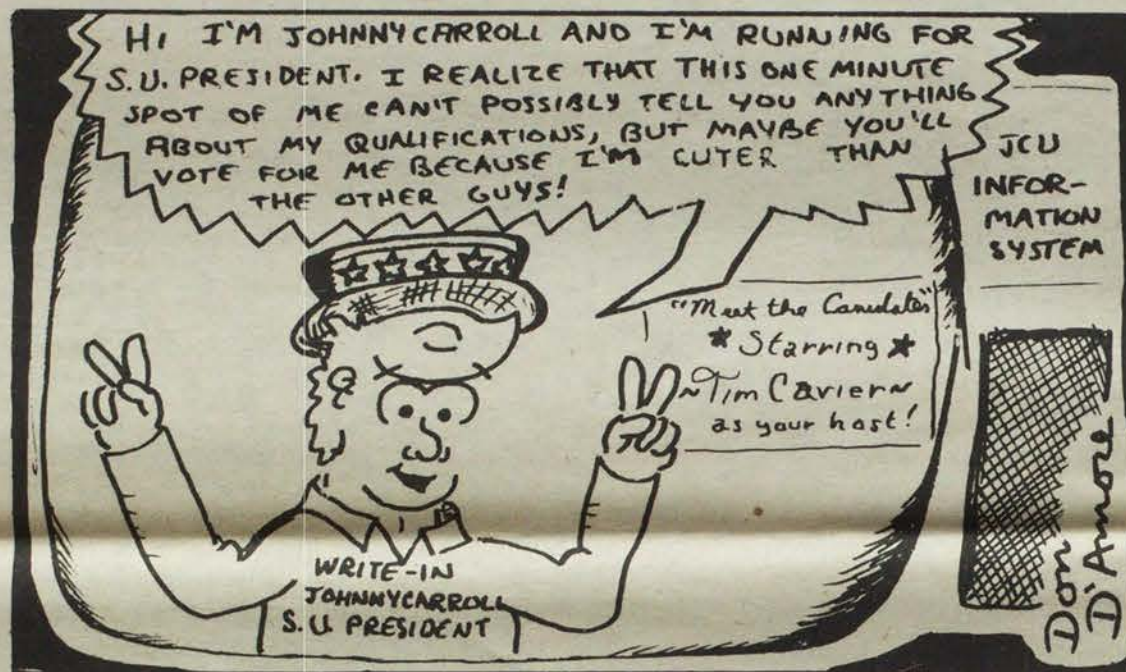 HI I'M JOHNNYCARROLL AND I'M RUNNING FOR
S.U. PRESIDENT. I REALIZE THAT THIS ONE MINUTE
SPOT OF ME CAN'T POSSIBLY TELL YOU ANYTHING
ABOUT MY QUALIFICATIONS, BUT MAYBE YOU'LL
VOTE FOR ME BECAUSE I'M CUTER THAN
THE OTHER GUYS!
JCU
INFOR-
MATION
SYSTEM
"Meet the Canidates"
★ Starring ★
~Tim Cavier~
as your host!
WRITE-IN
JOHNNYCARROLL
S.U. PRESIDENT
Don
D'Amore